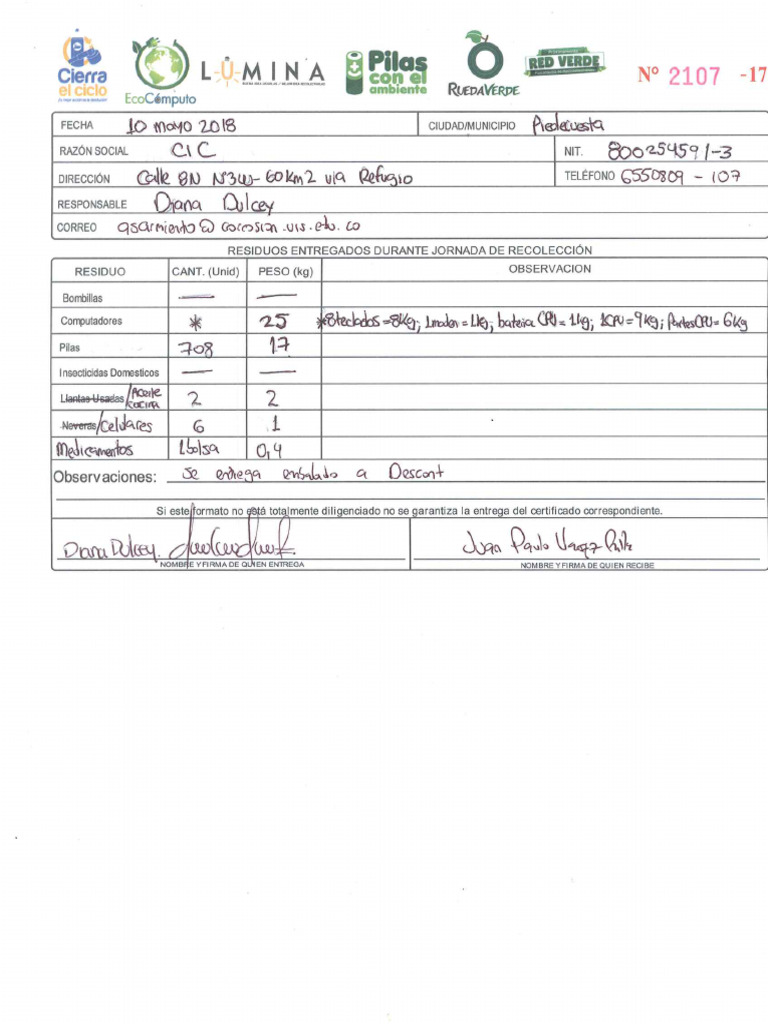 Cierra
el ciclo
EcoCómputo
LUMINA
Pilas
con el
ambiente
RUEDAVERDE
RED VERDE
N° 2107 -17
FECHA 10 mayo 2018 CIUDAD/MUNICIPIO Piedecuesta
RAZÓN SOCIAL CIC NIT. 800254591-3
DIRECCIÓN Calle 8N N°3W-60 Km2 via Refugio TELÉFONO 6550809 - 107
RESPONSABLE Diana Dulcey
CORREO asarmiento@corrosion.uis.edu.co
RESIDUOS ENTREGADOS DURANTE JORNADA DE RECOLECCIÓN
RESIDUO CANT. (Unid) PESO (kg) OBSERVACION
Bombillas — —
Computadores * 25 *8 teclados = 8Kg; 1 moden = 1Kg; bateria CPU = 1Kg; 1CPU = 9Kg; Partes CPU = 6Kg
Pilas 708 17
Insecticidas Domesticos — —
Llantas Usadas /Aceite cocina 2 2
Neveras /Celulares 6 1
Medicamentos 1 bolsa 0,4
Observaciones: Se entrega embalado a Descont
Si este formato no está totalmente diligenciado no se garantiza la entrega del certificado correspondiente.
Diana Dulcey Juan Paulo
NOMBRE Y FIRMA DE QUIEN ENTREGA NOMBRE Y FIRMA DE QUIEN RECIBE